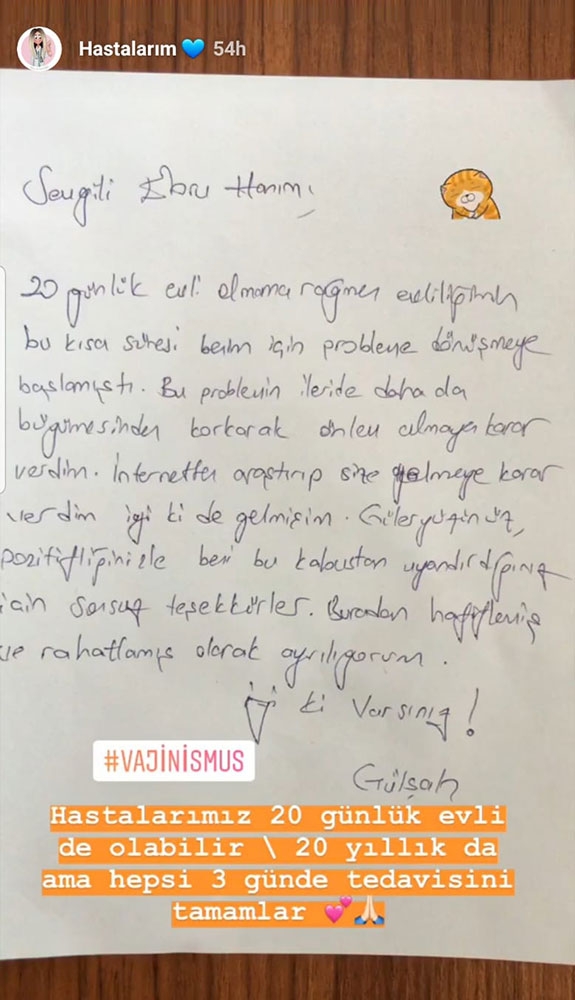 Hastalarım 💙 54h
Sevgili Ebru Hanım,
20 günlük evli olmama rağmen evliliğimin
bu kısa süresi benim için probleme dönüşmeye
başlamıştı. Bu problemin ileride daha da
büyümesinden korkarak önlem almaya karar
verdim. İnternetten araştırıp size gelmeye karar
verdim iyi ki de gelmişim. Güleryüzünüz,
pozitifliğinizle beni bu kabustan uyandırdığınız
için sonsuz teşekkürler. Buradan hafiflemiş
ve rahatlamış olarak ayrılıyorum.
İyi ki varsınız!
Gülşah
#VAJİNİSMUS
Hastalarımız 20 günlük evli
de olabilir \ 20 yıllık da
ama hepsi 3 günde tedavisini
tamamlar 💕🙏🏻